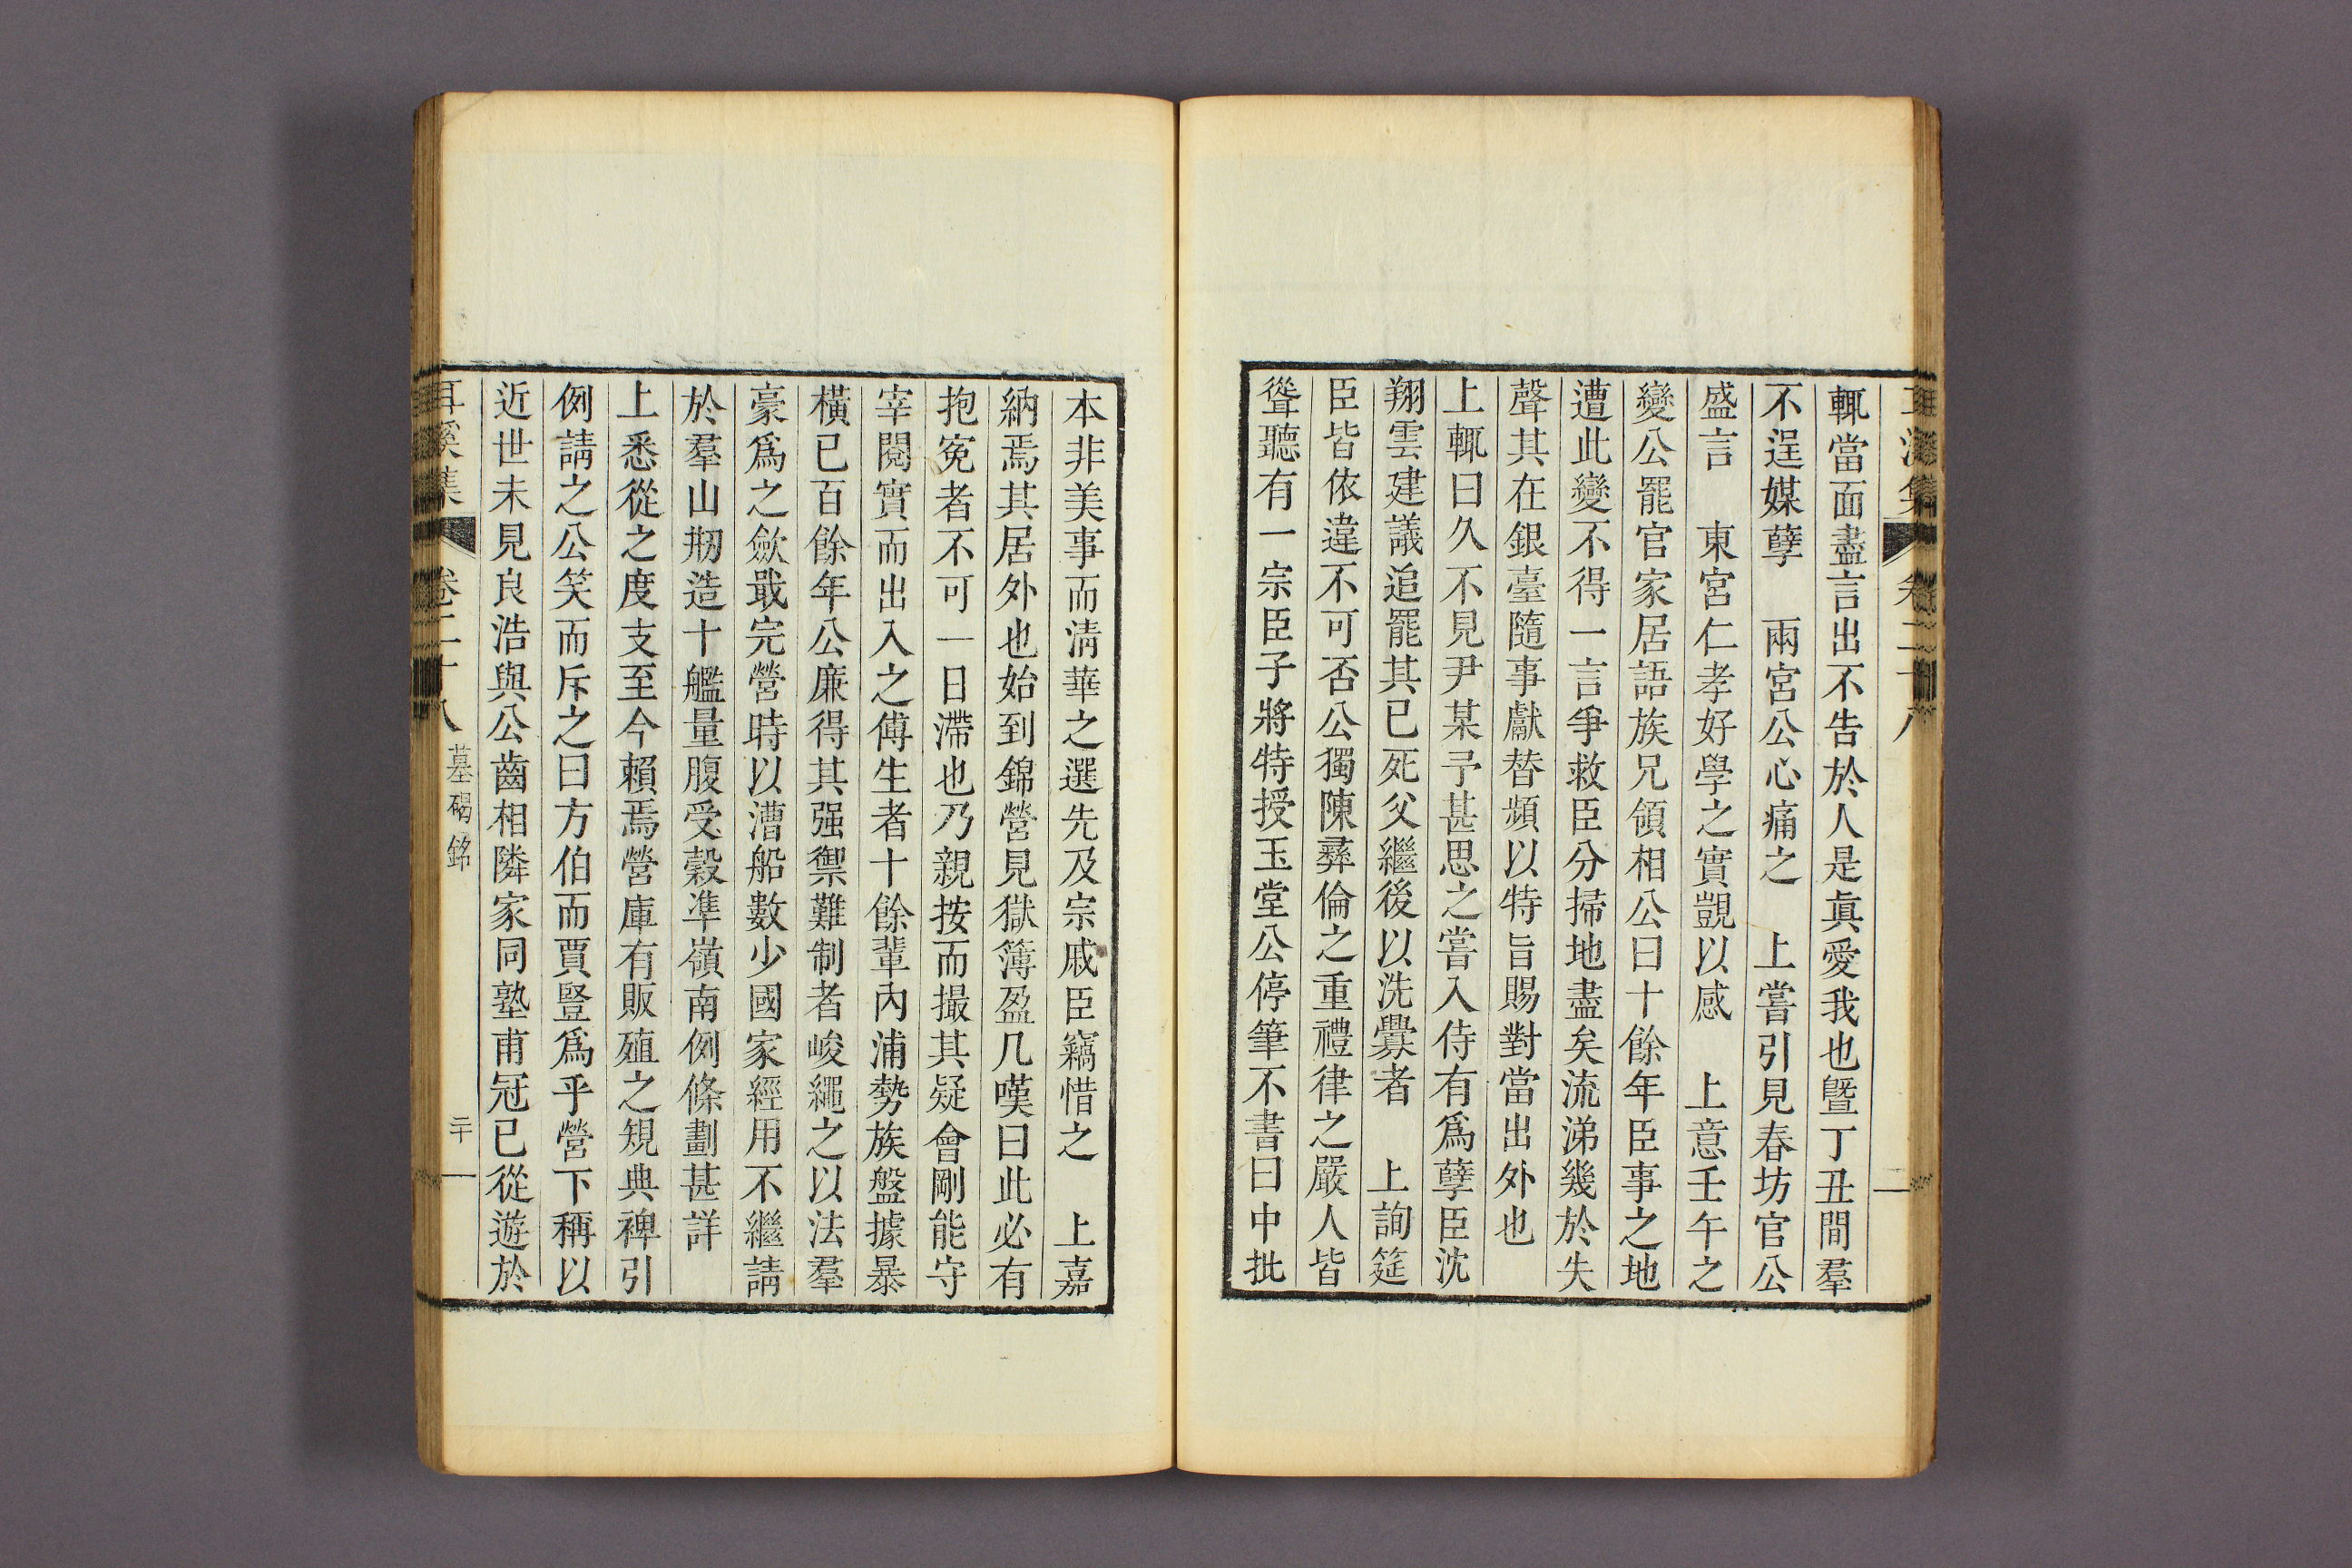 輒當面盡言出不告於人是眞愛我也曁丁丑間羣
不逞媒孽　兩宮公心痛之　上嘗引見春坊官公
盛言　東宮仁孝好學之實覬以感　上意壬午之
變公罷官家居語族兄領相公曰十餘年臣事之地
遭此變不得一言爭救臣分掃地盡矣流涕幾於失
聲其在銀臺隨事獻替頻以特旨賜對當出外也
上輒曰久不見尹某予甚思之嘗入侍有爲孽臣沈
翔雲建議追罷其已死父繼後以洗釁者　上詢筵
臣皆依違不可否公獨陳彛倫之重禮律之嚴人皆
聳聽有一宗臣子將特授玉堂公停筆不書曰中批
本非美事而淸華之選先及宗戚臣竊惜之　上嘉
納焉其居外也始到錦營見獄簿盈几嘆曰此必有
抱寃者不可一日滯也乃親按而撮其疑會剛能守
宰閱實而出入之傅生者十餘輩內浦勢族盤據暴
橫已百餘年公廉得其强禦難制者峻繩之以法羣
豪爲之歛戢完營時以漕船數少國家經用不繼請
於羣山剏造十艦量腹受穀準嶺南例條劃甚詳
上悉從之度支至今賴焉營庫有販殖之䂓典裨引
例請之公笑而斥之曰方伯而賈豎爲乎營下稱以
近世未見良浩與公齒相隣家同塾甫冠已從遊於
耳溪集　卷二十八　墓碣銘